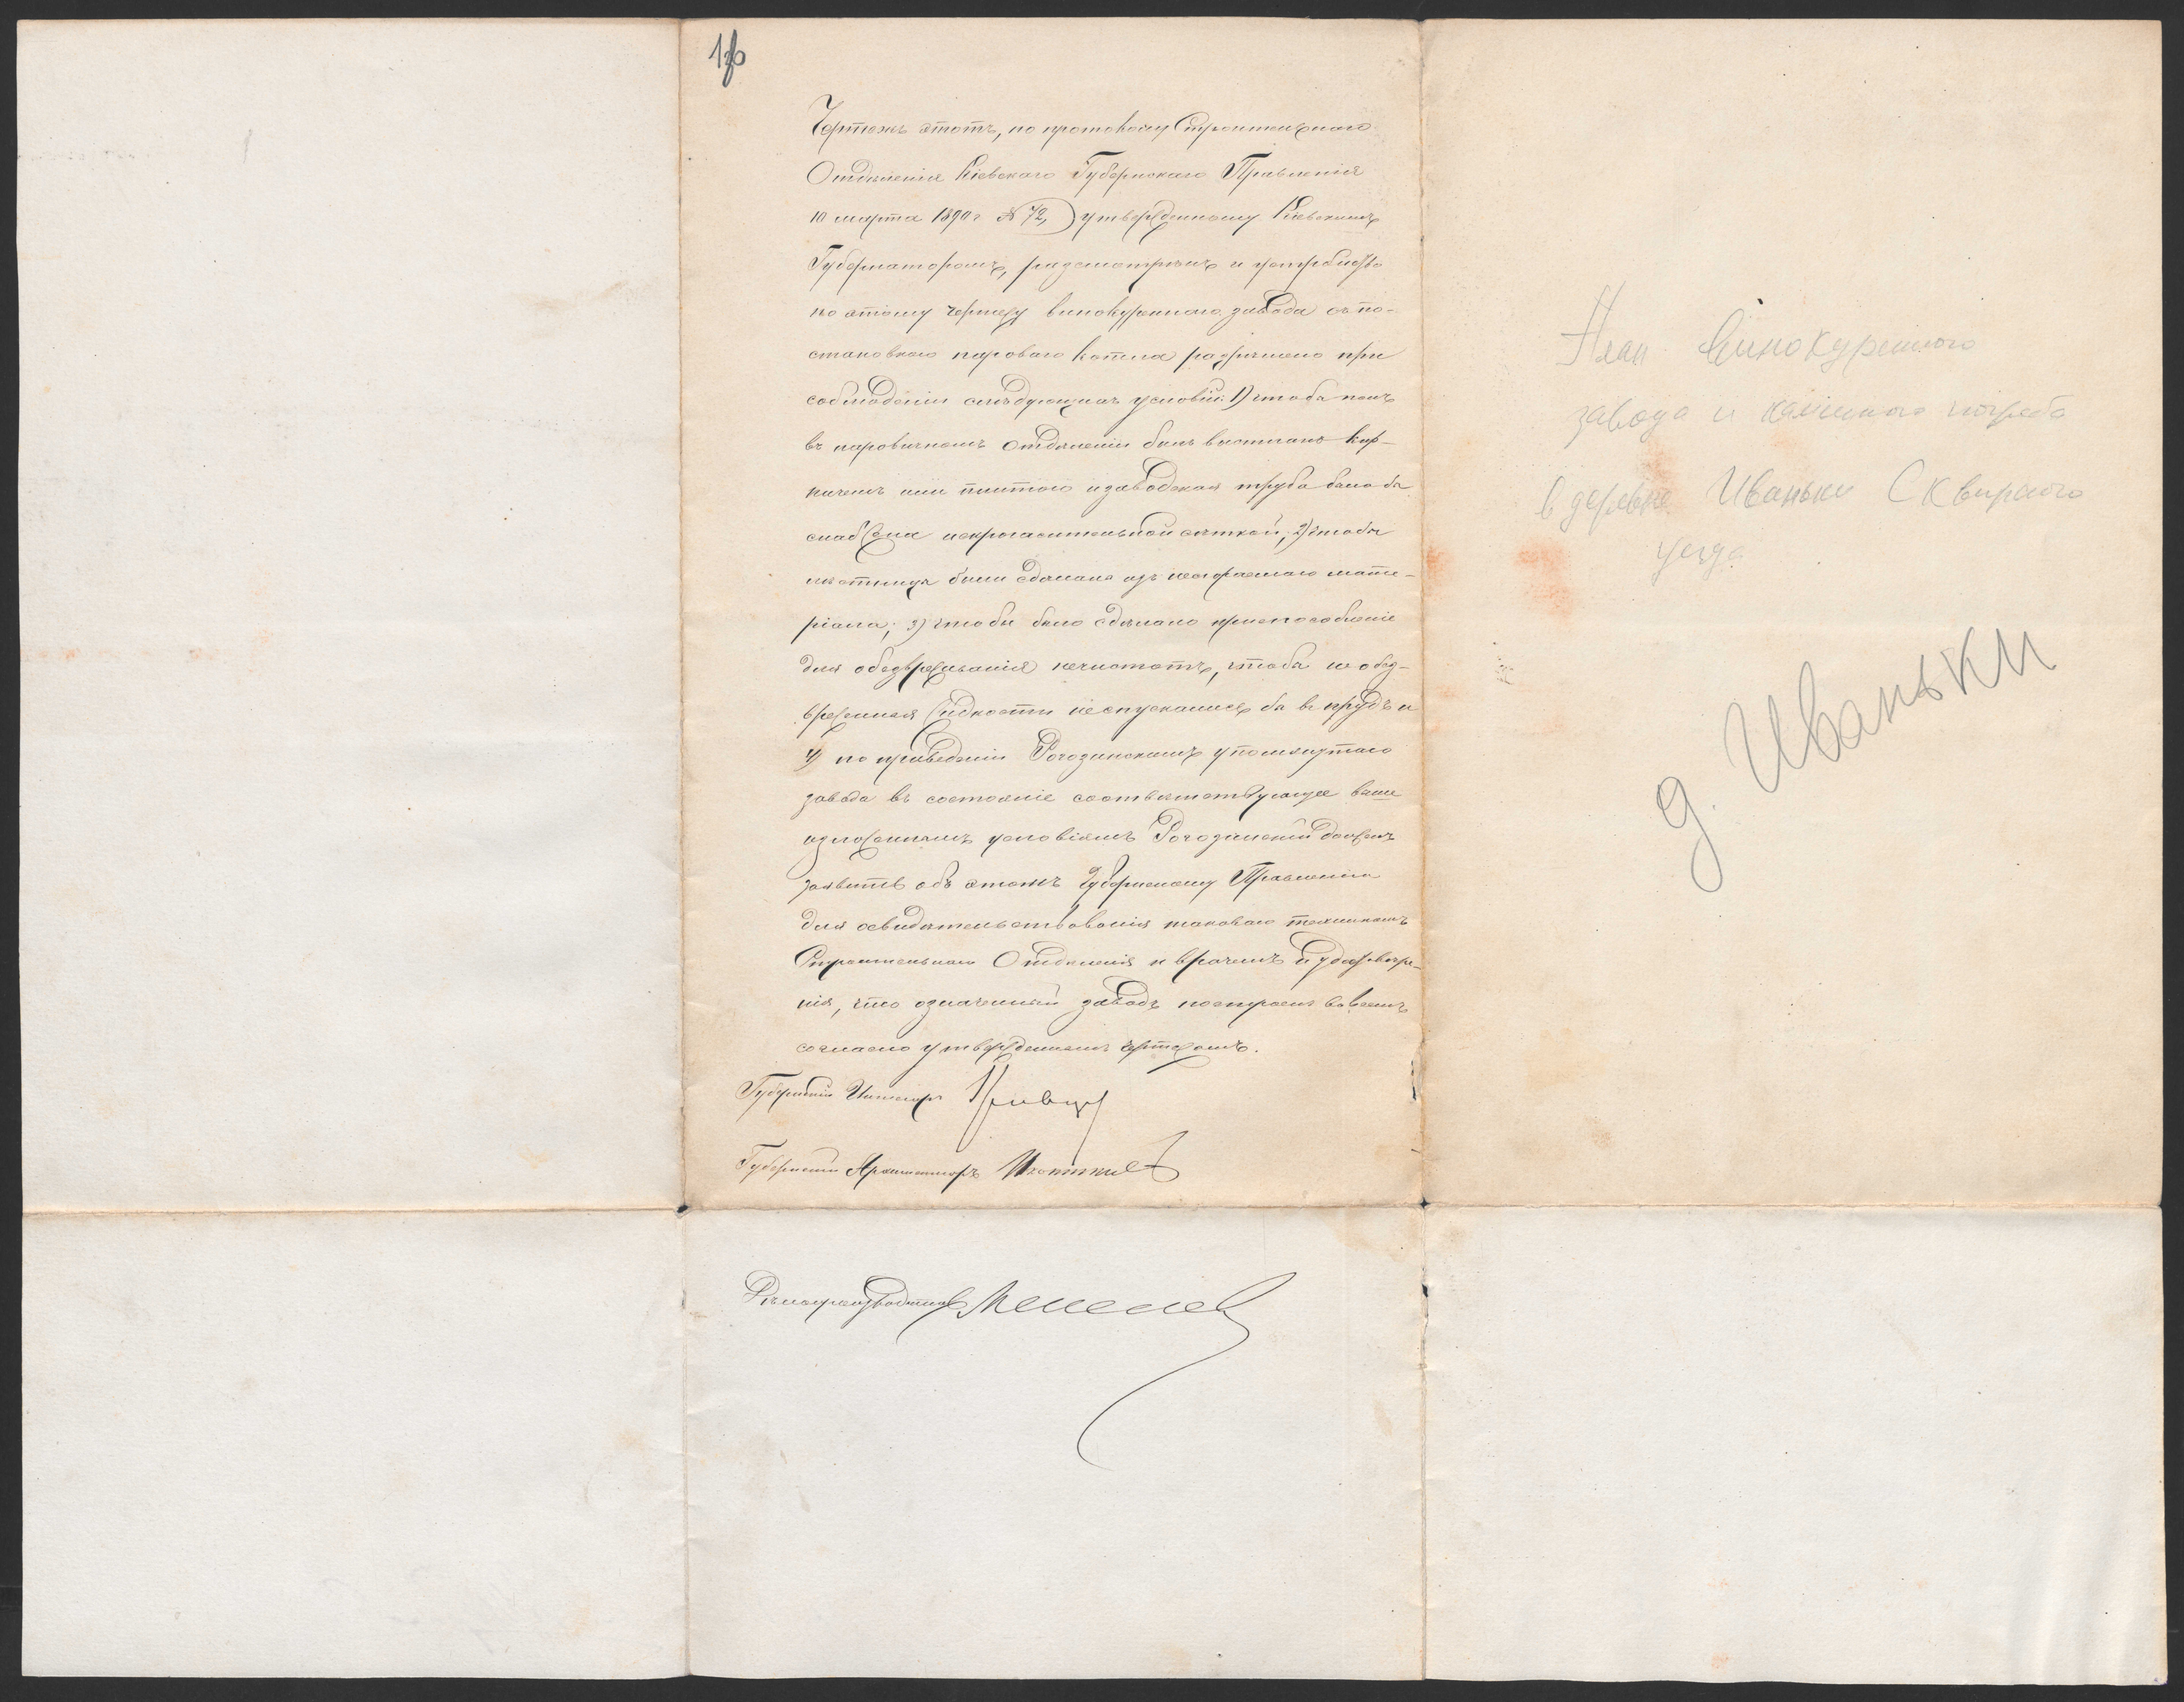 Чертежъ этотъ, по протоколу Строительнаго
Отдѣленія Кіевскаго Губернскаго Правленія
10 марта 1890 г № 72, утвержденному Кіевскимъ
Губернаторомъ, разсмотрѣнъ и устройство
по этому чертежу винокуреннаго завода съ по-
становкою пароваго котла разрѣшено при
соблюденіи слѣдующихъ условій: 1) чтобы полъ
въ паровичномъ отдѣленіи былъ выстланъ кир-
пичемъ или плитою и заводская труба была бы
снабжена искрогасительной сѣткой; 2) чтобы
лѣстницы были сдѣланы изъ несгораемаго мате-
ріала; 3) чтобы было сдѣлано приспособленіе
для обезвреживанія нечистотъ, чтобы не обез-
вреженныя жидкости не спускались бы въ прудъ и
4) по приведеніи Рогозинскимъ упомянутаго
завода въ состояніе соотвѣтствующее выше
изложеннымъ условіямъ Рогозинскій долженъ
заявить объ этомъ Губернскому Правленію
для освидѣтельствованія таковаго техникомъ
Строительнаго Отдѣленія и врачемъ и удостовѣре-
нія, что означенный заводъ построенъ во всемъ
согласно утвержденнымъ чертежамъ.
Губернскій Инженеръ
Губернскій Архитекторъ
Дѣлопроизводитель
План винокуренного
завода и каменного погреба
в деревне Иваньки Сквирского
уезда
д. Иваньки